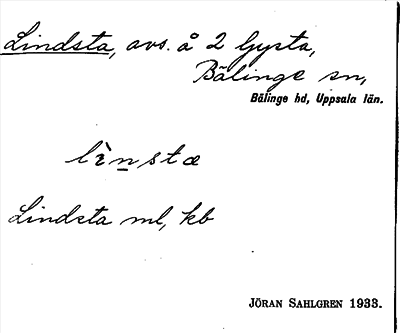 Lindsta, avs. å 2 Gysta,
Bälinge sn,
Bälinge hd, Uppsala län.
lìnstæ
Lindsta ml, kb
JÖRAN SAHLGREN 1933.